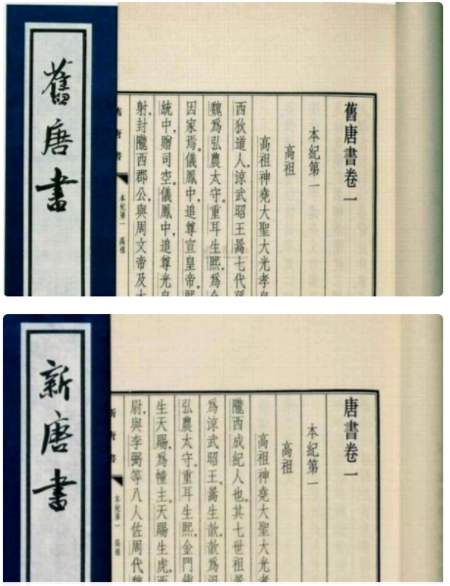 舊唐書
舊唐書卷一
本紀第一
高祖
高祖神堯大聖大光孝皇
西狄道人涼武昭王暠七代孫
魏爲弘農太守重耳生熙爲金
因家焉儀鳳中追尊宣皇帝熙
統中贈司空儀鳳中追尊光皇
射封隴西郡公與周文帝及太
舊唐書
本紀第一
高祖
新唐書
唐書卷一
本紀第一
高祖
高祖神堯大聖大光孝皇
隴西成紀人也其七世祖暠
爲涼武昭王暠生歆歆爲
弘農太守重耳生熙金門鎮
生天賜爲幢主天賜生虎西
尉與李弼等八人佐周代魏
本紀第一
高祖